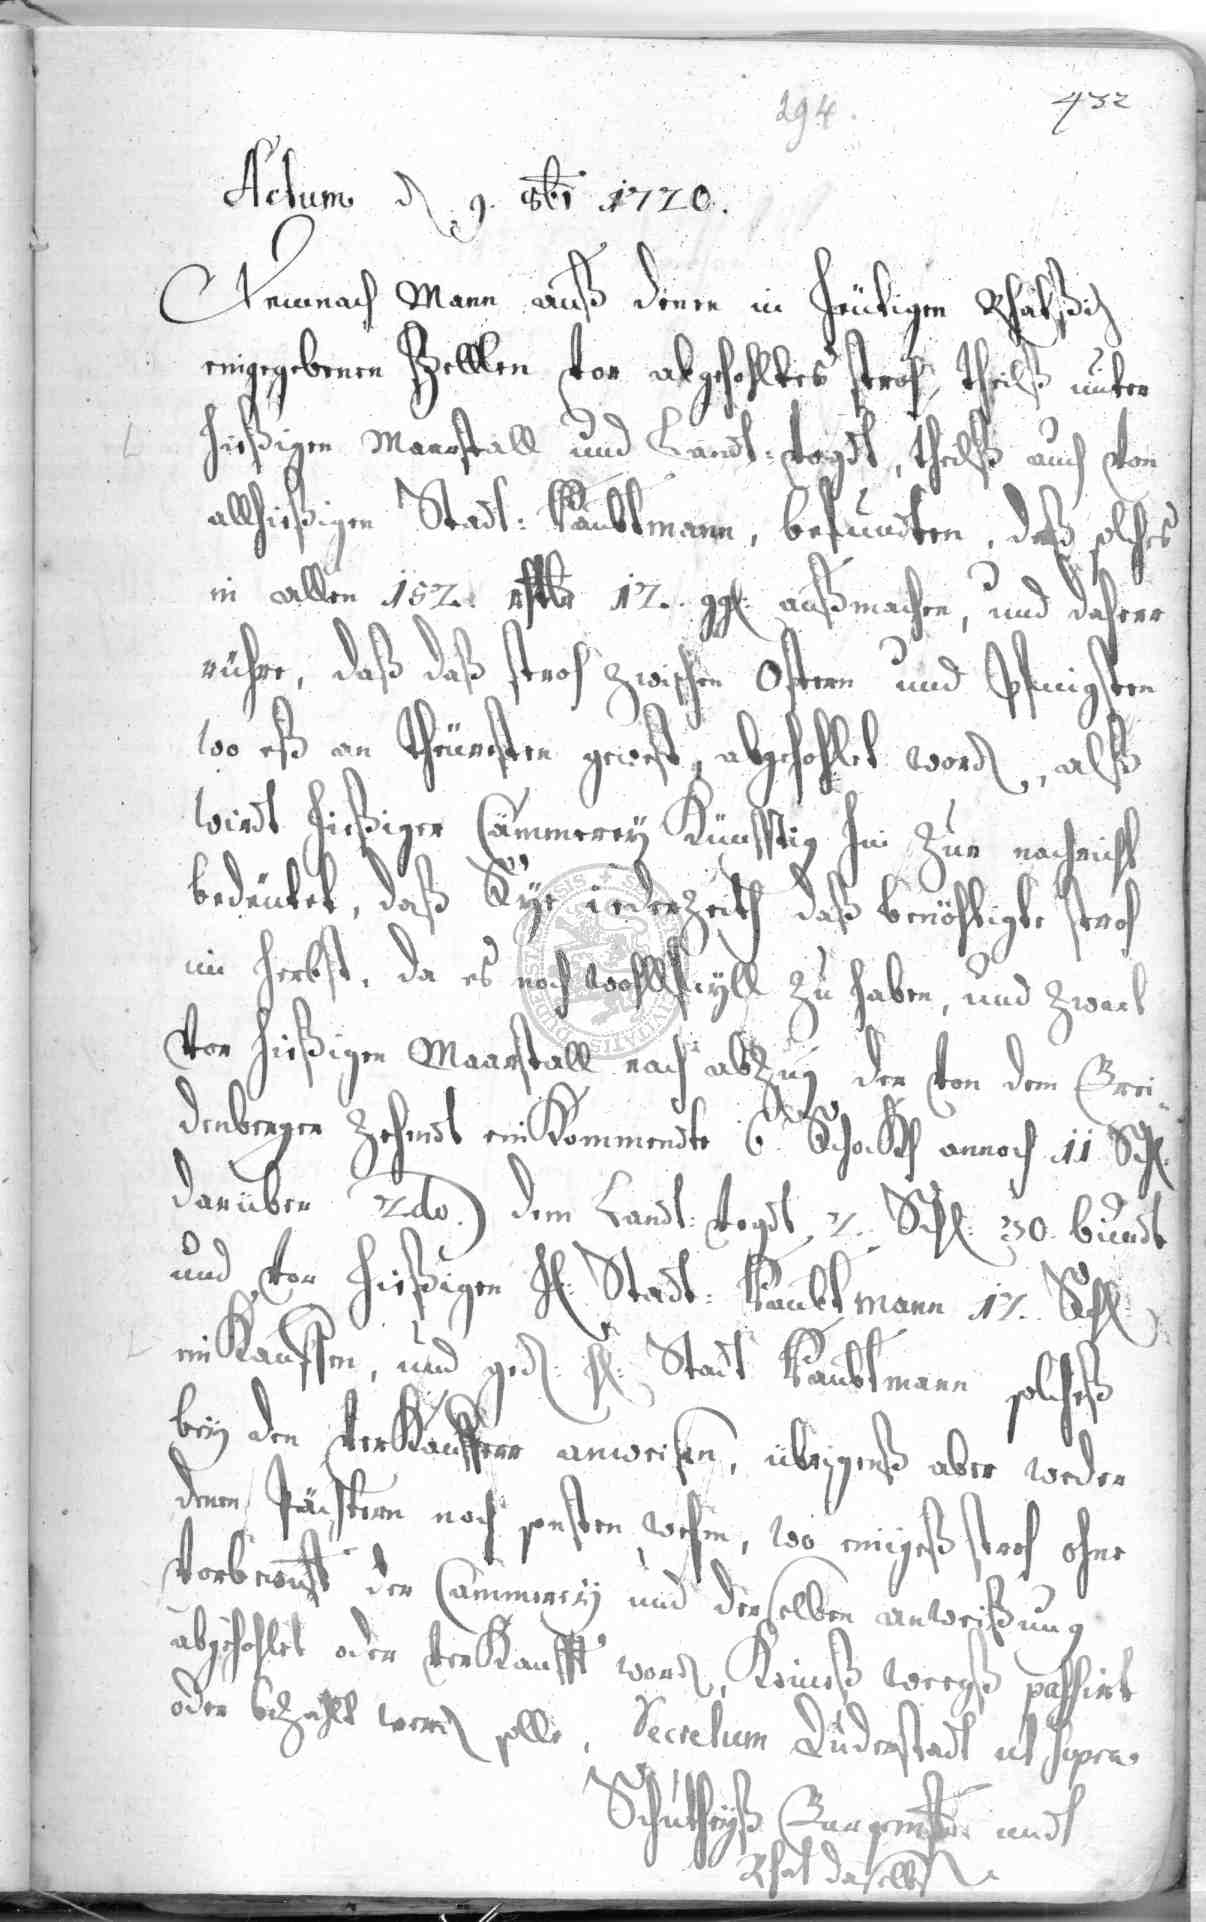 294.
432
Actum d. 9. 8bri 1720.
Demnach Mann auß denen in heütigen Rhatßitz
eingegebenen Zettlen vor abgehohltes stroh, theilß unter
hießigen Maarstall und Landt-vogdt, theilß auch von
allhießigen Stadt: Haubtmann, befundten, daß solches
in allen 152. rthlr 12. ggl. außmachen, und daherr
rühre, daß daß stroh zwischen Ostern und Pfingsten
wo eß an theüresten gewest, abgehohlet word., alß
wirdt hießiger Cämmerey Künfftig hin zur nachricht
bedeütet, daß Sye iederzeith daß benöhtigte stroh
im herbst, da es noch wohllfeyll zu haben, und zwarl
vor hießigen Maarstall nach abzug der von dem Brei-
denberger zehendt einKommendte 6 Schock annoch 11 Schl.
darüber 2do.) dem Landt-vogdt 2. Schl. 30. bundt
und vor hießigen H. Stadt: Haubtmann 12. Schl.
einKauffen, und ged. H. Stadt Haubtmann solcheß
bey den verKäuffer anweisen, übrigenß aber weder
denen Pächtern noch sonsten wehm, wo einigeß stroh ohne
vorbewust der Cämmerey und derselben anweißung
abgehohlet oder verKaufft word., Keineß weegß passirt
oder bezahlt werd. solle, Decretum Duderstadt ut supra.
Schultheyß Burgermstr. undt
Rhat daselbst